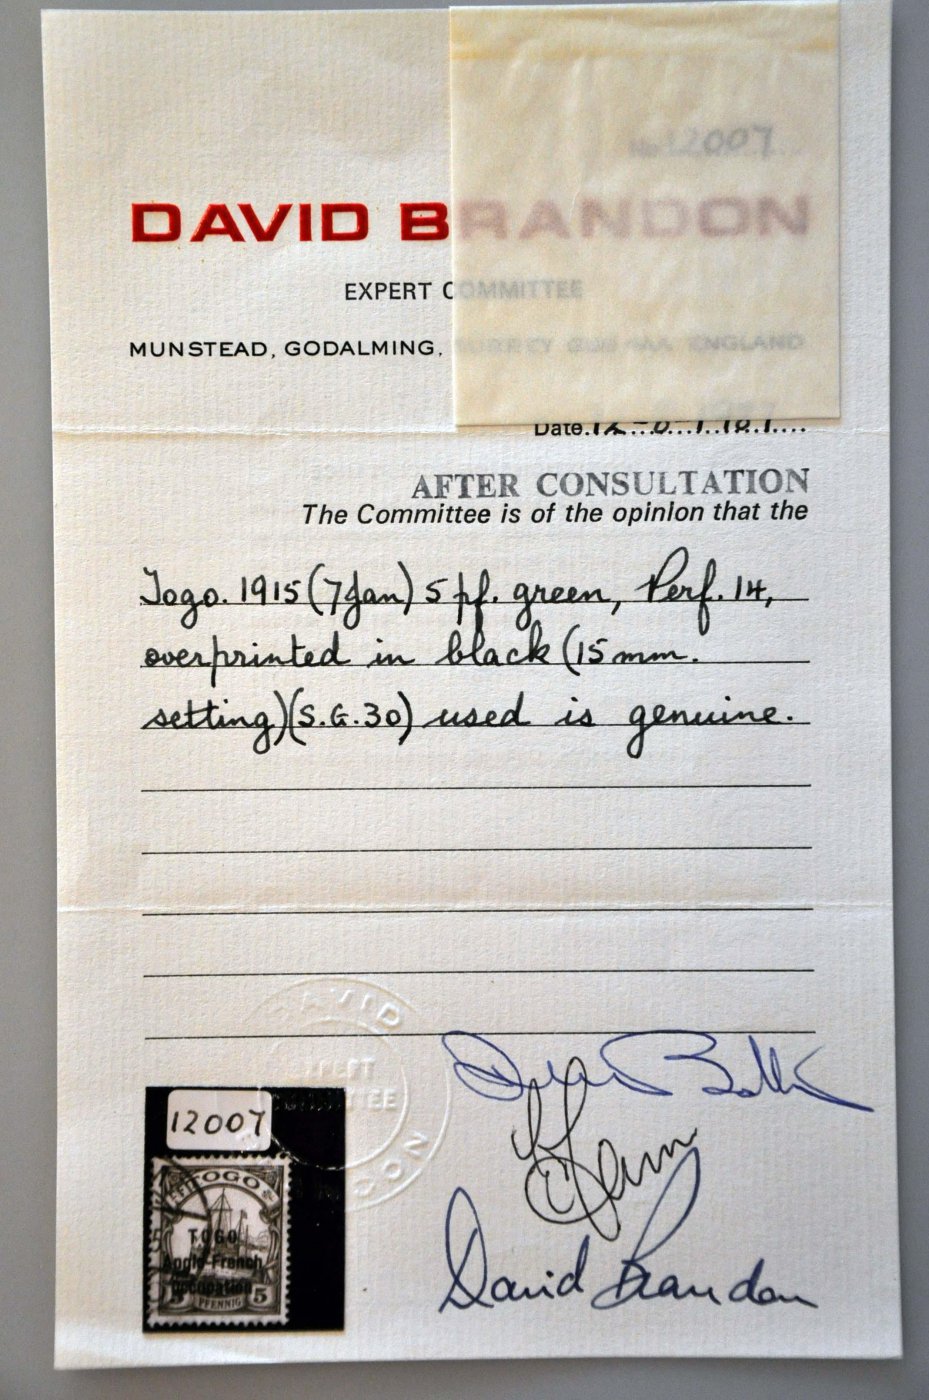 No. 12007
DAVID BRANDON
EXPERT COMMITTEE
MUNSTEAD, GODALMING, SURREY ENGLAND
Date.
AFTER CONSULTATION
The Committee is of the opinion that the
Togo. 1915 (7 Jan) 5 pf. green, Perf. 14,
overprinted in black (15 mm.
setting) (S.G. 30) used is genuine.
DAVID
EXPERT
COMMITTEE
12007
TOGO
TOGO
Anglo-French
Occupation
5 PFENNIG 5
David Brandon